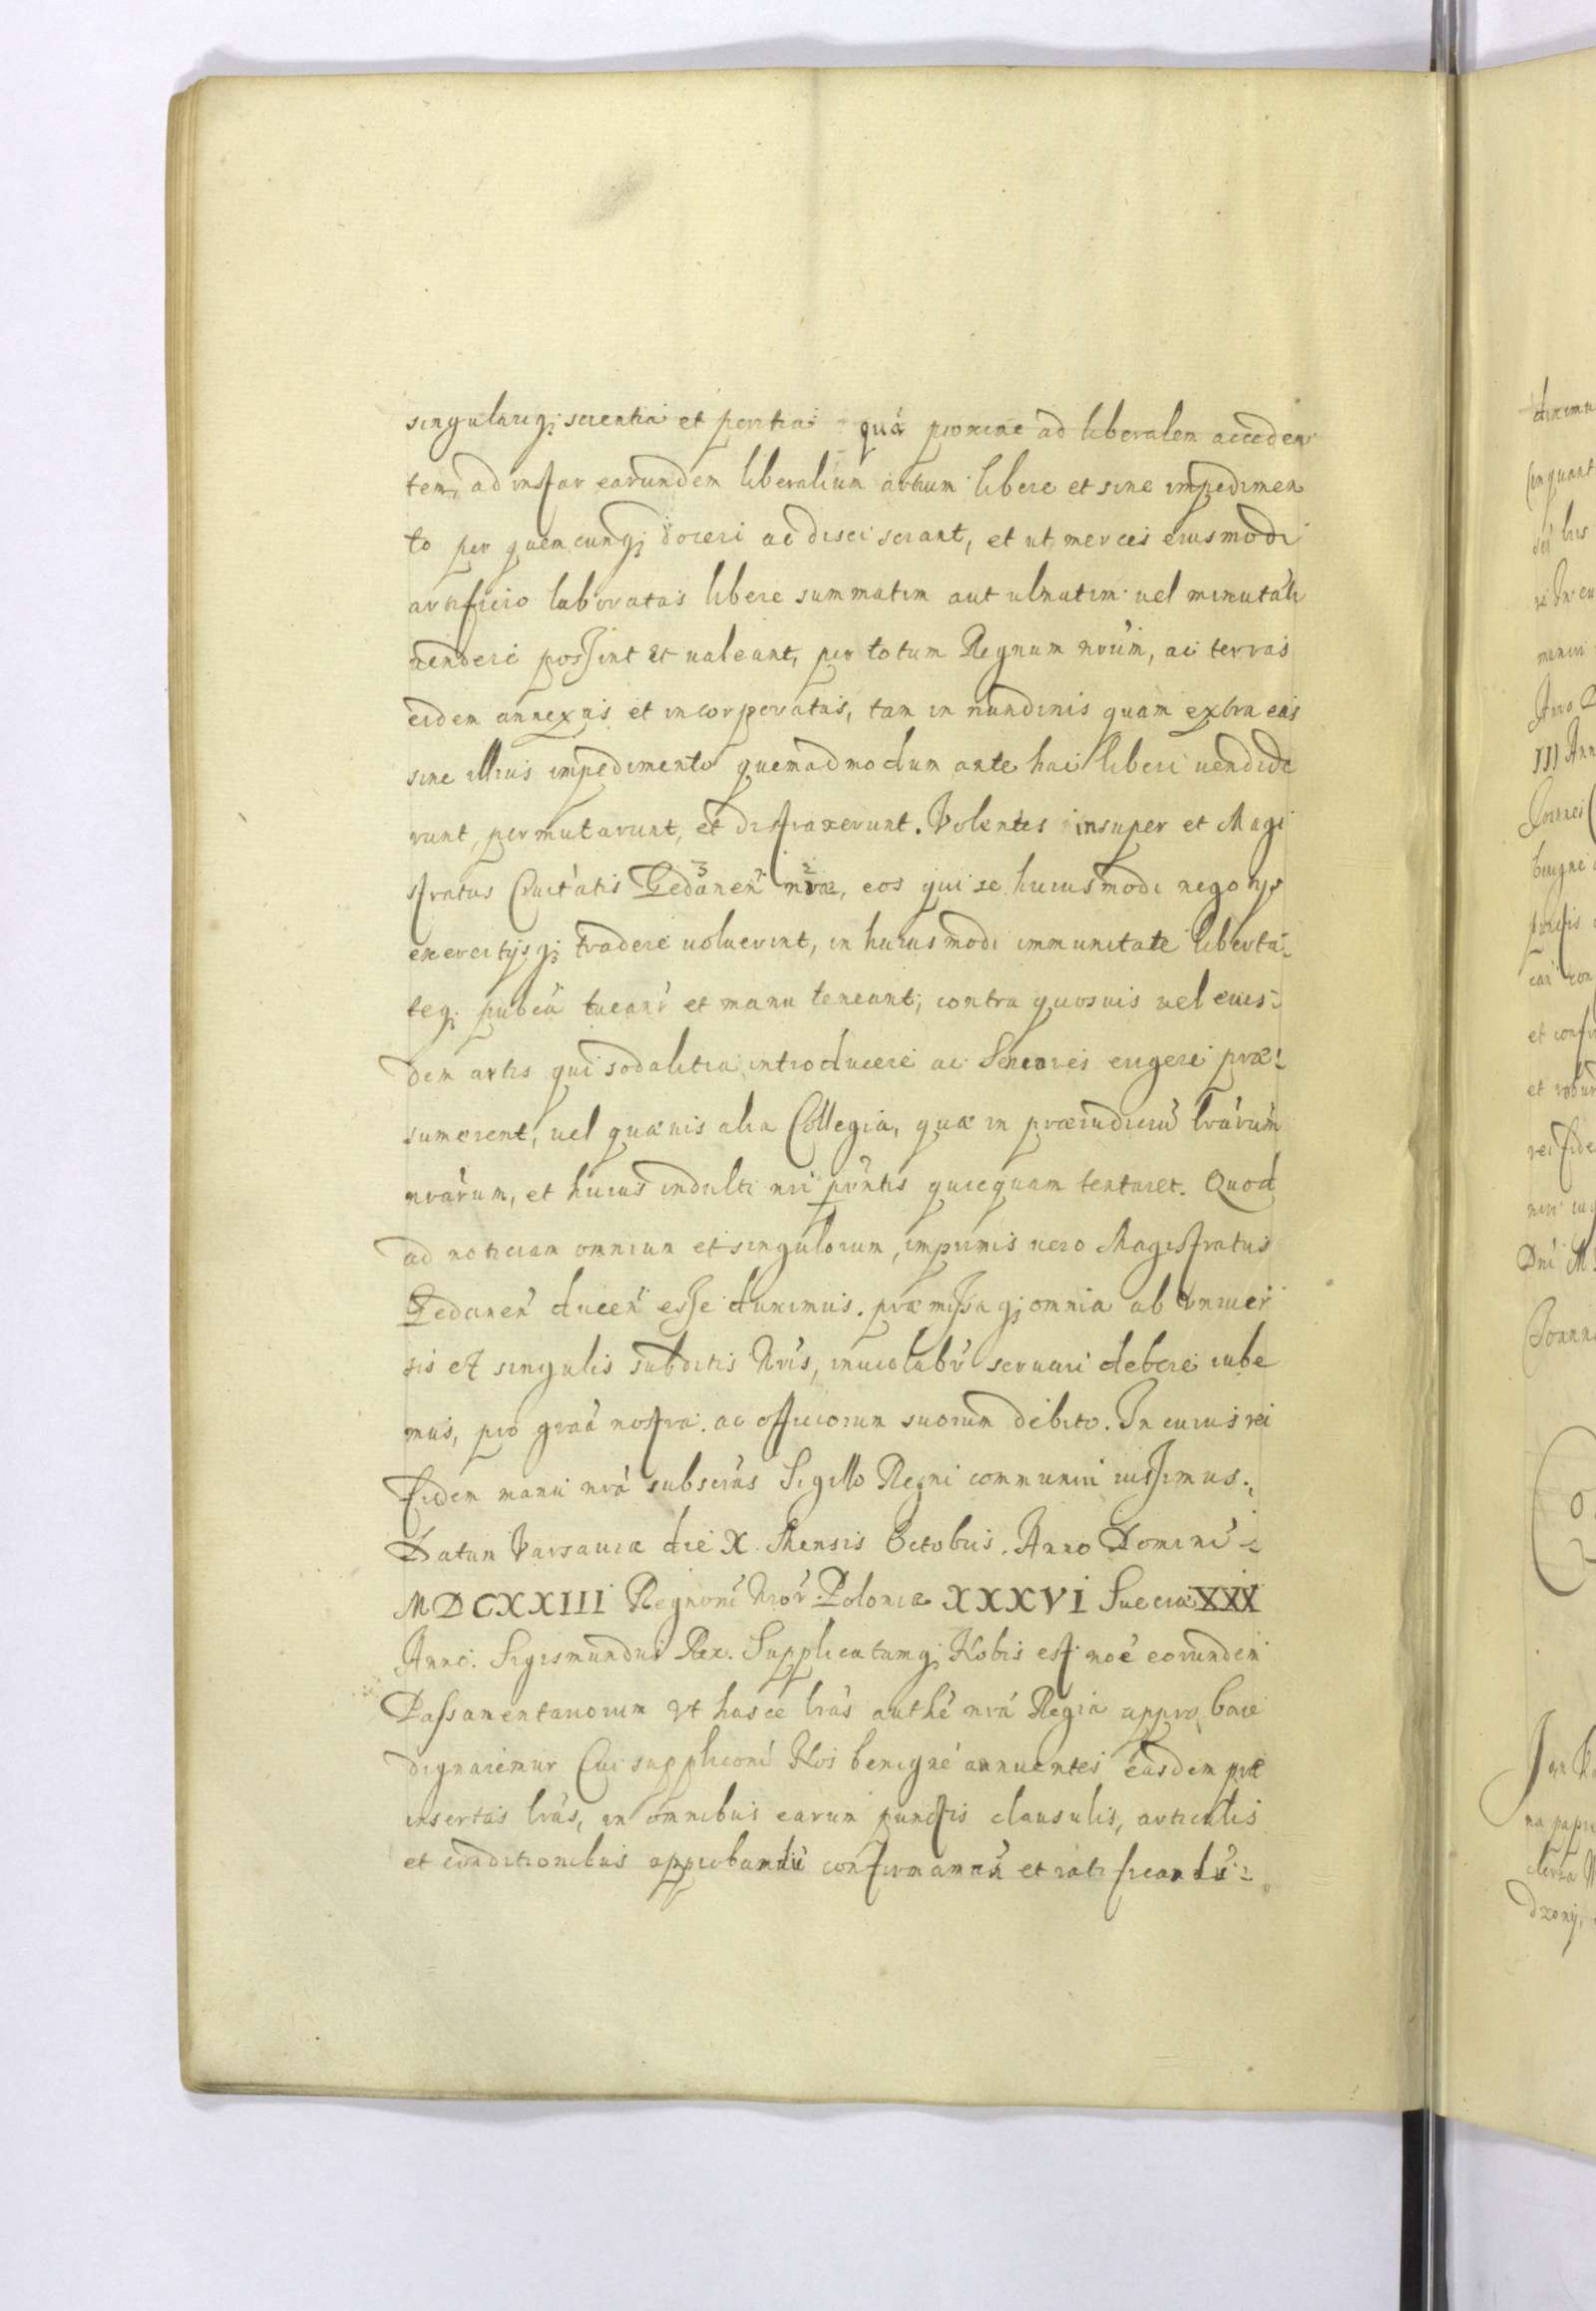 singulariq; scientia et peritia quá proxime ad liberalem acceden
tem, ad instar earundem liberalium artium libere et sine impedimen
to per quemcunq; doceri ac disci sciant, et ut merces eiusmodi
artificio laboratas libere summatim aut ulnatim uel minutáli
uendere possint et ualeant, per totum Regnum nrum, ac terras
eidem annexas et incorporatas, tam in nundinis quam extra eas
sine illius impedimento quemadmodum ante hac libere uendide
runt, permutarunt, et distraxerunt. Volentes insuper et Magi
stratus Ciuitatis Gedanen nrae, eos qui se huiusmodi negotijs
exercitijsq; tradere uoluerint, in huiusmodi immunitate liberta-
teq; pubca tueanr et manu teneant; contra quosuis uel eius-
dem artis qui sodalitia introducere ac Seniores erigere præ-
sumerent, uel quæuis alia Collegia, quæ in præiudiciu lrarum
nrarum, et huius indulti nri pntis quicquam tentaret. Quod
ad noticiam omnium et singulorum, imprimis uero Magistratus
Gedanen ducen esse duximus. præmissaq; omnia ab vniuer
sis et singulis subditis Nris, inuiolabr seruari debere iube
mus, pro graa nostra ac officiorum suorum debito. In cuius rei
fidem manu nra subscras Sigillo Regni communiri iussimus.
Datum Varsauiæ die X. Mensis Octobris. Anno Domini
MDCXXIII Regnoru Nror Poloniæ XXXVI Sueciæ XXX
Anno. Sigismundus Rex. Supplicatumq; Nobis est noe eorundem
Passamentariorum vt hasce lras authe nra Regia approbare
dignaremur Cui suppliconi Nos benigne annuentes easdem præ
insertas lras, in omnibus earum punctis clausulis, articulis
et conditionibus approbandu confirmandu et ratificandu